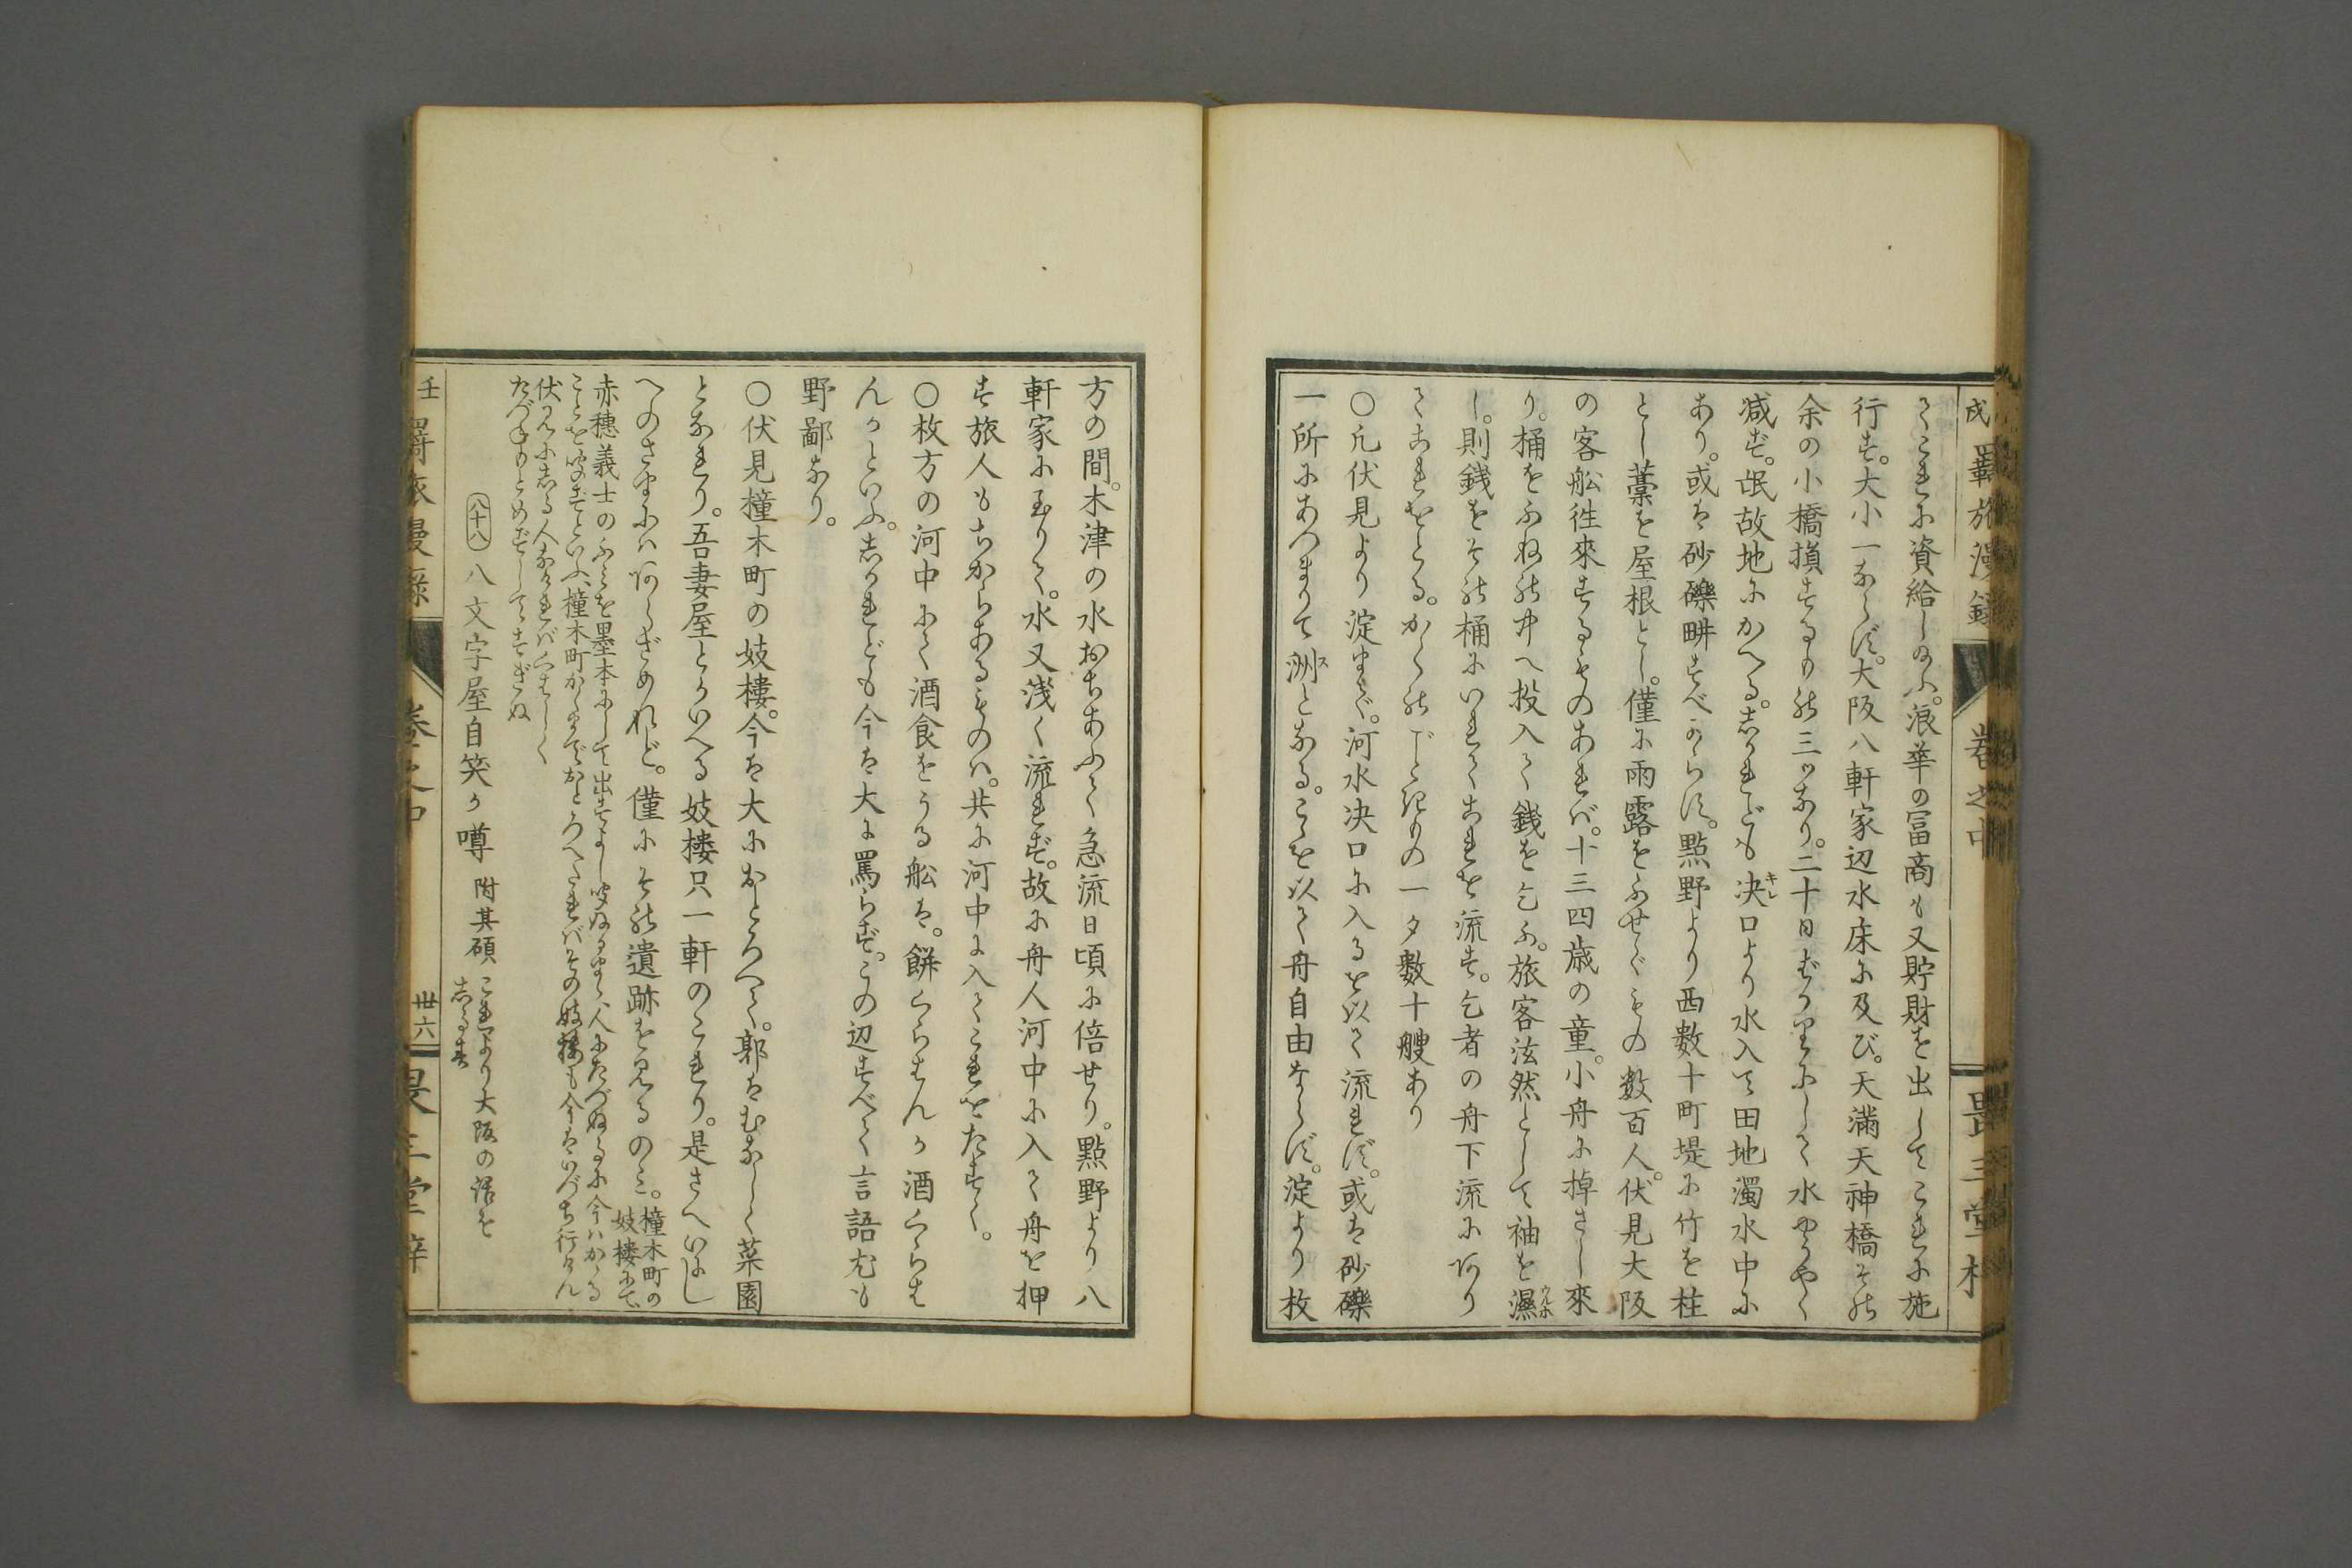 戌 羈旅漫録 巻之中
てこれに資給し給ふ。浪華の冨商も又貯財を出してこれに施
行す。大小一ならず。大阪八軒家辺水床に及び。天満天神橋その
余の小橋損するもの三ツあり。二十日ばかりにして水やうやく
减ず。民故地にかへる。しかれども决口より水入て田地濁水中に
あり。或は砂礫畊すべからず。點野より西数十町堤に竹を柱
とし藁を屋根とし。僅に雨露をふせぐもの数百人。伏見大阪
の客舩徃來するものあれば。十三四歳の童。小舟に棹さし來
り。桶をふねの中へ投入て銭を乞ふ。旅客泫然として袖を濕
し。則銭をその桶にいれてこれを流す。乞者の舟下流にあり
てこれをとる。かくのごときもの一夕数十艘あり
○凡伏見より淀まで。河水决口に入るを以て流れず。或は砂礫
一所にあつまりて洲となる。こゝを以て舟自由ならず。淀より枚
方の間。木津の水おちあふて急流日頃に倍せり。點野より八
軒家に至りて。水又浅く流れず。故に舟人河中に入て舟を押
す旅人もちからあるものは。共に河中に入てこれをたすく。
○枚方の河中にて酒食をうる舩は。餅くらはんか酒くらは
んかといふ。しかれども今は大に罵らず。この辺すべて言語尤も
野鄙なり。
○伏見橦木町の妓樓。今は大におとろへて。郭はむなしく菜園
となれり。吾妻屋とかいへる妓楼只一軒のこれり。是さへいにし
へのさまにはあらざめれど。僅にその遺跡を見るのみ。橦木町の
妓楼にて
赤穗義士のふみを墨本にして出すよし聞ぬるまゝ人にたづぬるに今はかゝる
ことを聞ずといふ、橦木町かくまでおとろへたればその妓楼も今はいづち行けん
伏見にしる人なければくはしく
たづねもとめずしてすぎぬ
八十八 八文字屋自笑か噂 附其碩 これより大阪の話を
しるす
巻之中 卅六